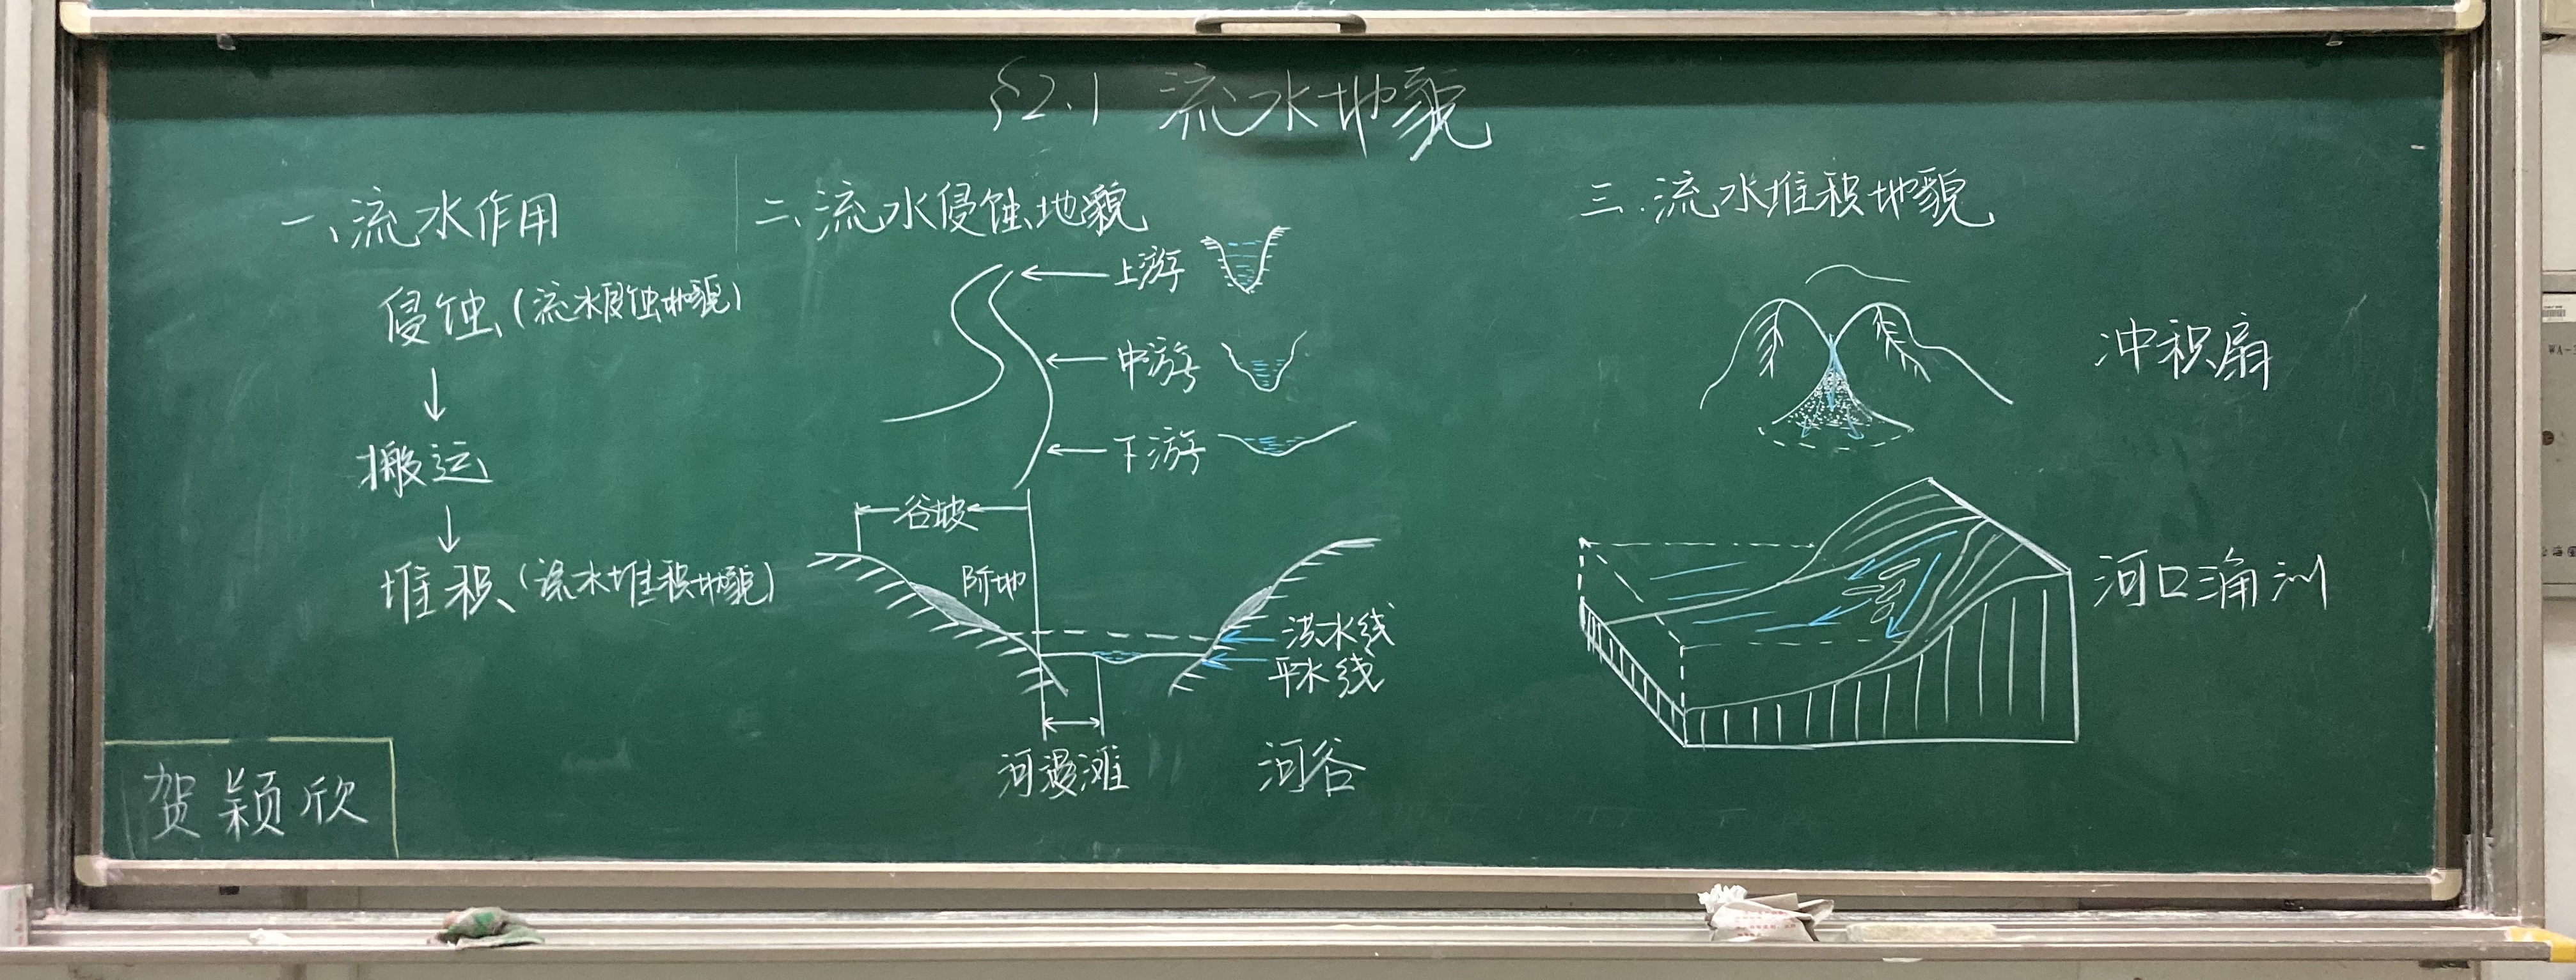 §2.1 流水地貌
一、流水作用
侵蚀(流水侵蚀地貌)
↓
搬运
↓
堆积(流水堆积地貌)
二、流水侵蚀地貌
上游
中游
下游
谷坡
阶地
洪水线
平水线
河漫滩
河谷
三.流水堆积地貌
冲积扇
河口
贺颖欣